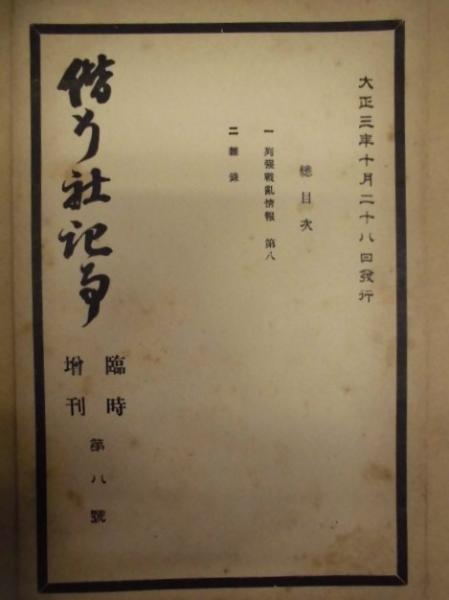 大正三年十月二十八日發行
總目次
一 列強戰亂情報 第八
二 雜録
偕行社記事
臨時
增刊
第八號